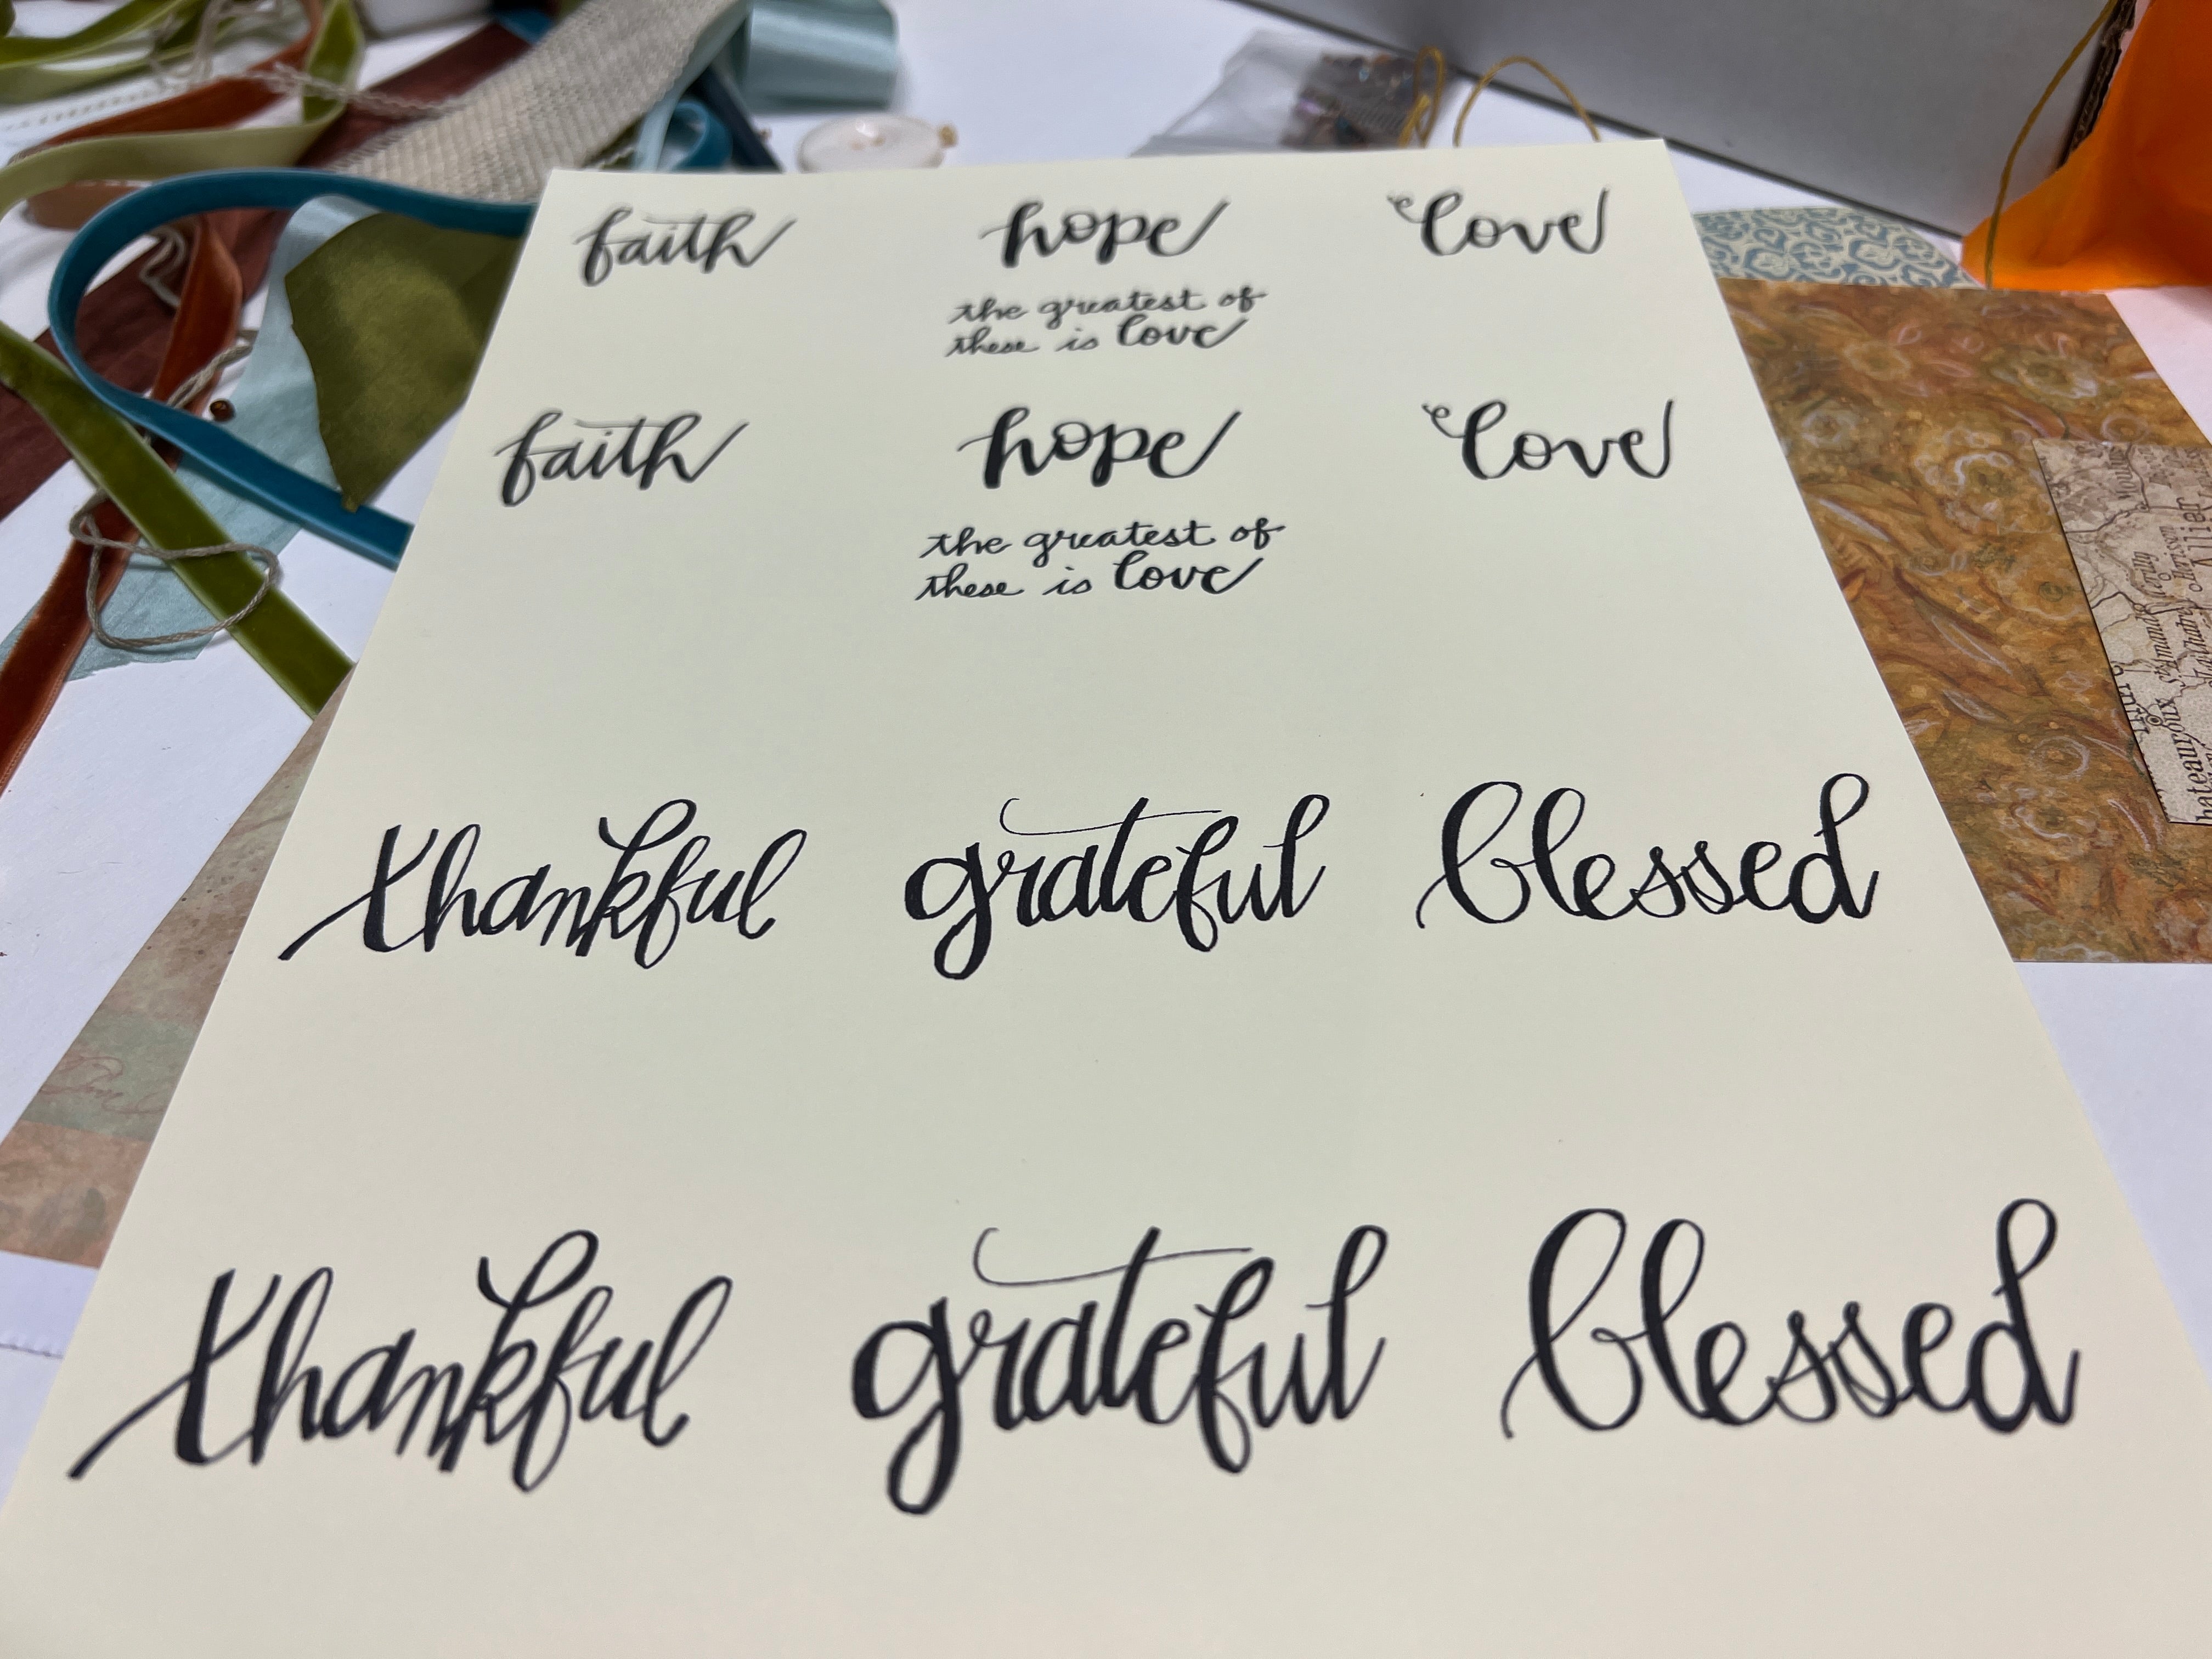 faith hope love
the greatest of
these is love
faith hope love
the greatest of
these is love
thankful grateful blessed
thankful grateful blessed
Allier